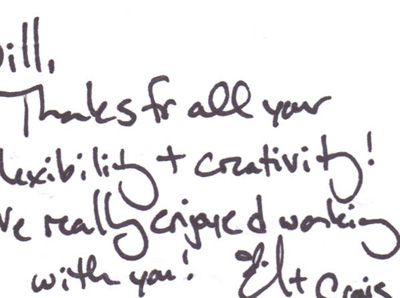 ill,
Thanks fr all your
lexibility + creativity!
ve really enjoyed working
with you!